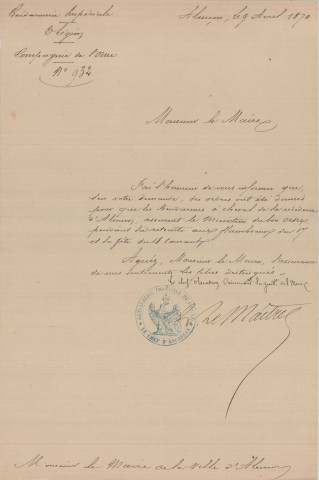 Gendarmerie Impériale
Légion
Compagnie de l'Orne
N° 932
Alençon, le 9 Avril 1870
Monsieur le Maire,
J'ai l'honneur de vous informer que,
sur votre demande, des ordres ont été donnés
pour que les Gendarmes à cheval de la résidence
d'Alençon, assurent le maintien du bon ordre
pendant la retraite aux flambeaux du 17
et la fête du 18 courant.
Agréez, Monsieur le Maire, l'assurance
de mes sentiments les plus distingués.
Le Chef d'Escadron Commandant la Comp. de l'Orne
Le Maître
Monsieur le Maire de la Ville d'Alençon